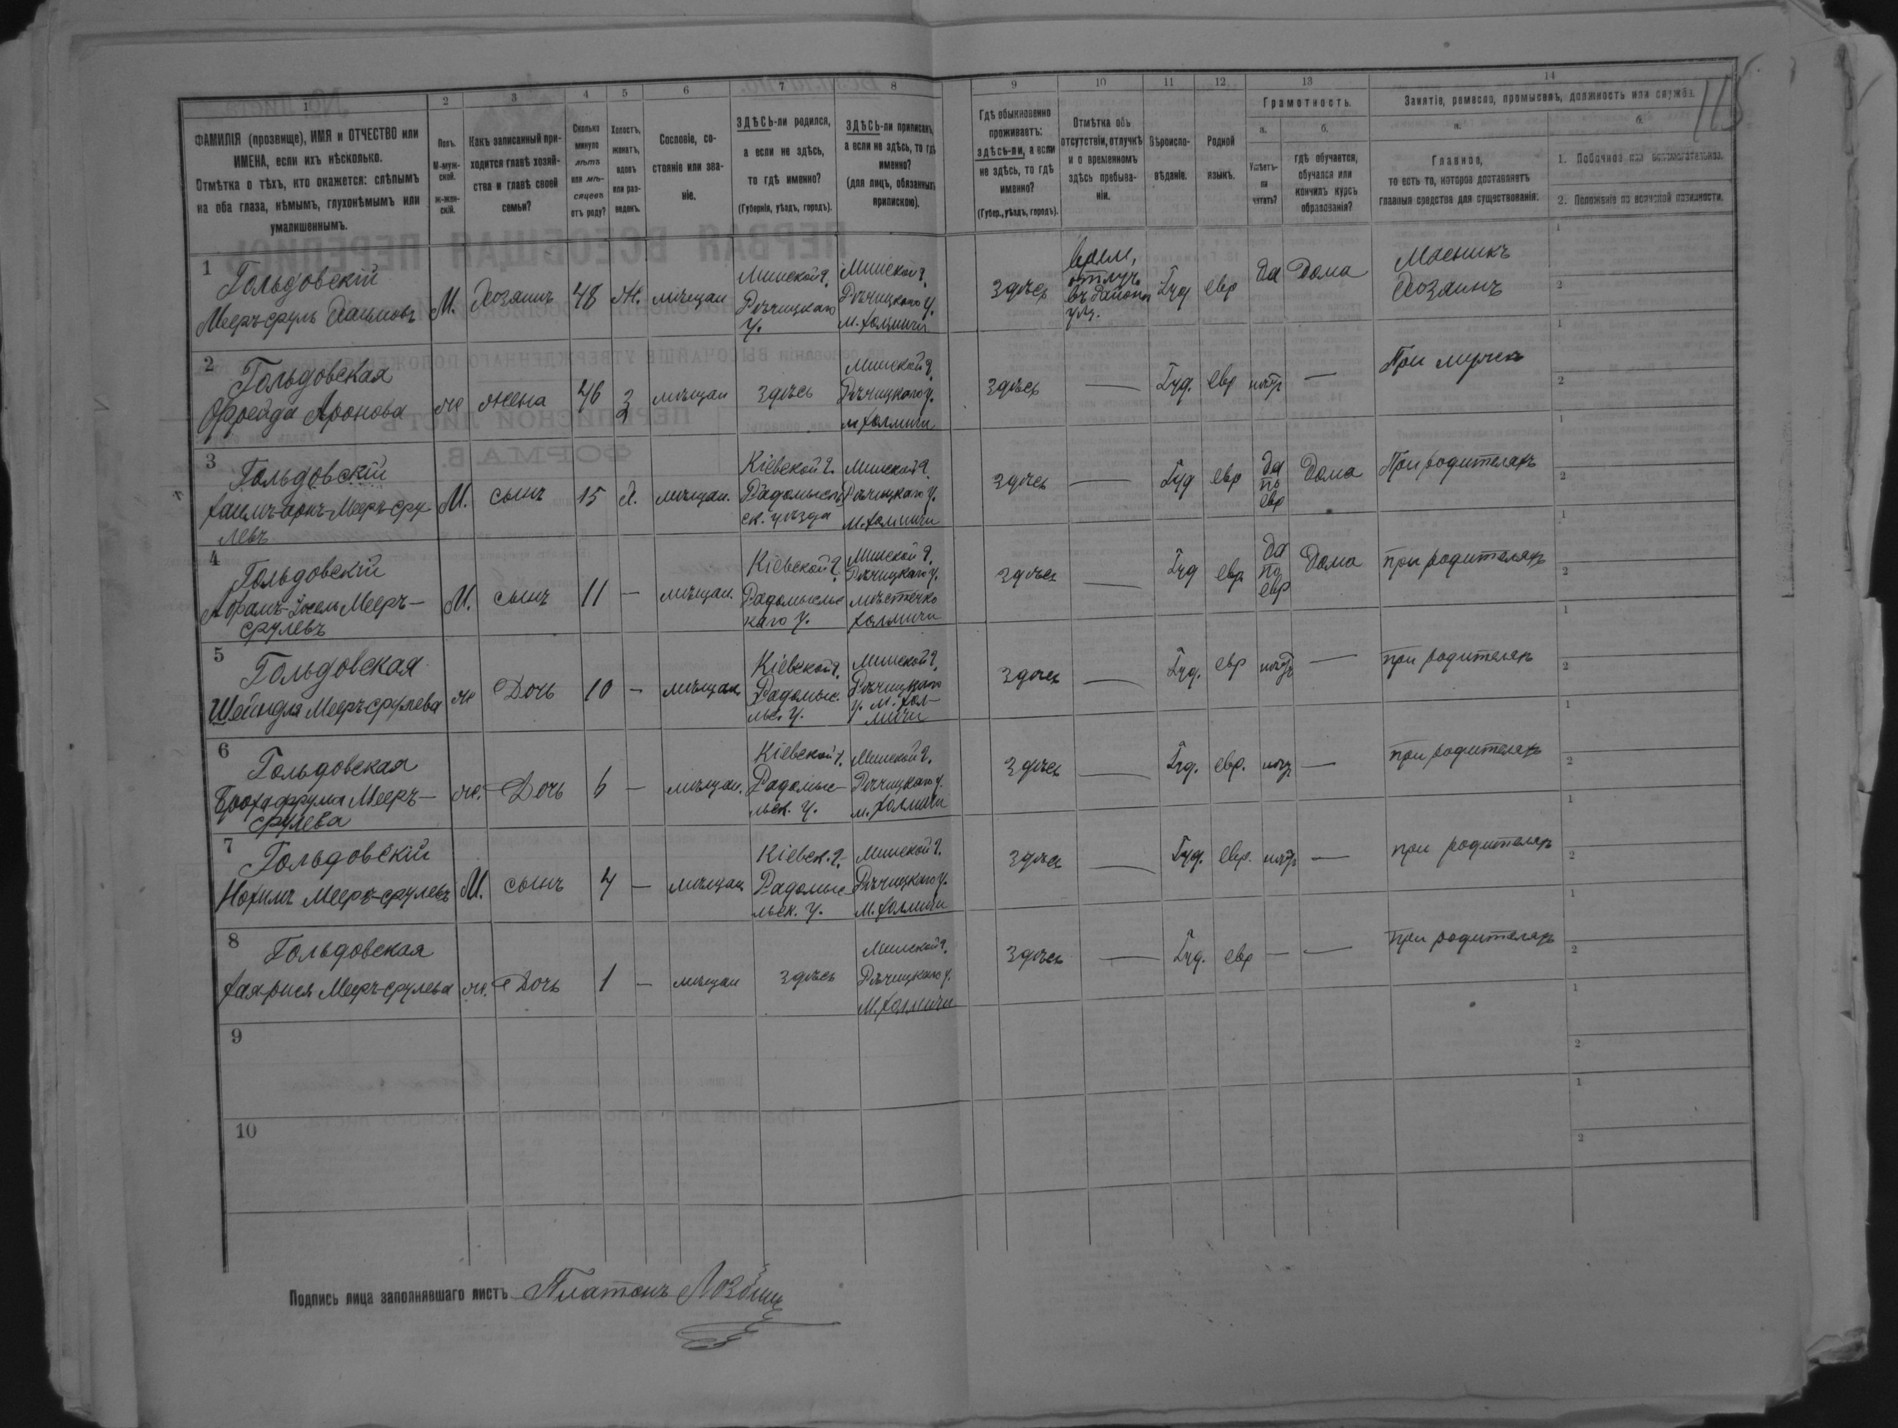 115
1
2
3
4
5
6
7
8
9
10
11
12
13
14
ФАМИЛІЯ (прозвище), ИМЯ и ОТЧЕСТВО или
ИМЕНА, если ихъ нѣсколько.
Отмѣтка о тѣхъ, кто окажется: слѣпымъ
на оба глаза, нѣмымъ, глухонѣмымъ или
умалишеннымъ.
Полъ.
М-муж-
ской.
ж-жен-
скій.
Какъ записанный при-
ходится главѣ хозяй-
ства и главѣ своей
семьи?
Сколько
минуло
лѣтъ
или мѣ-
сяцевъ
отъ роду?
Холостъ,
женатъ,
вдовъ
или раз-
веденъ.
Сословіе, со-
стояніе или зва-
ніе.
ЗДѢСЬ-ли родился,
а если не здѣсь,
то гдѣ именно?
(Губернія, уѣздъ, городъ).
ЗДѢСЬ-ли приписанъ,
а если не здѣсь, то гдѣ
именно?
(для лицъ, обязанныхъ
припискою).
Гдѣ обыкновенно
проживаетъ:
здѣсь-ли, а если
не здѣсь, то гдѣ
именно?
(Губер., уѣздъ, городъ).
Отмѣтка объ
отсутствіи, отлучкѣ
и о временномъ
здѣсь пребыва-
ніи.
Вѣроиспо-
вѣданіе.
Родной
языкъ.
Грамотность.
а.
Умѣетъ-
ли
читать?
б.
гдѣ обучается,
обучался или
кончилъ курсъ
образованія?
Занятіе, ремесло, промыселъ, должность или служба.
а.
Главное,
то есть то, которое доставляетъ
главныя средства для существованія.
б.
1. Побочное или вспомогательное.
2. Положеніе по воинской повинности.
1
Гольдовскій
Мееръ-сруль Хаимовъ
М.
Хозяинъ
48
Ж.
мѣщан
Минской г.
Рѣчицкаго
у.
Минской г.
Рѣчицкаго у.
м. Холмичи
Здѣсь
Іуд
евр
Да
Дома
Мясникъ
Хозяинъ
2
Гольдовская
Аронова
же
жена
46
З
мѣщан
здѣсь
Минской г.
Рѣчицкаго у.
м. Холмичи
здѣсь
—
Іуд.
евр
нѣтъ
—
При мужѣ
3
Гольдовскій
М.
сынъ
15
Х.
мѣщан.
Кіевской г.
Радомысль
ск. уѣзда
Минской г.
Рѣчицкаго у.
м. Холмичи
здѣсь
—
Іуд
евр
да
по
евр
Дома
При родителяхъ
4
Гольдовскій
Мееръ-
срулевъ
М.
сынъ
11
—
мѣщан.
Кіевской г.
Радомысльс
каго у.
Минской г.
Рѣчицкаго у.
мѣстечко
Холмичи
здѣсь
—
Іуд
евр
да
по
евр
Дома
при родителяхъ
5
Гольдовская
Шейндля Мееръ-срулева
же
Дочь
10
—
мѣщан
Кіевской г.
Радомыс-
льс. у.
Минской г.
Рѣчицкаго
у. м. Хол-
мичи
здѣсь
—
Іуд.
евр
нѣтъ
—
при родителяхъ
6
Гольдовская
Мееръ-
срулева
же.
Дочь
6
—
мѣщан.
Кіевской г.
Радомыс-
льск. у.
Минской г.
Рѣчицкаго у.
м. Холмичи
здѣсь
—
Іуд.
евр.
нѣтъ
—
при родителяхъ
7
Гольдовскій
Нохимъ Мееръ-срулевъ
М.
сынъ
4
—
мѣщан
Кіевск. г.
Радомыс-
льск. у.
Минской г.
Рѣчицкаго у.
м. Холмичи
здѣсь
—
Іуд.
евр.
нѣтъ
—
при родителяхъ
8
Гольдовская
Мееръ-срулева
же.
Дочь
1
—
мѣщан
здѣсь
Минской г.
Рѣчицкаго у.
м. Холмичи
здѣсь
—
Іуд.
евр
—
—
при родителяхъ
9
10
Подпись лица заполнявшаго листъ Платонъ